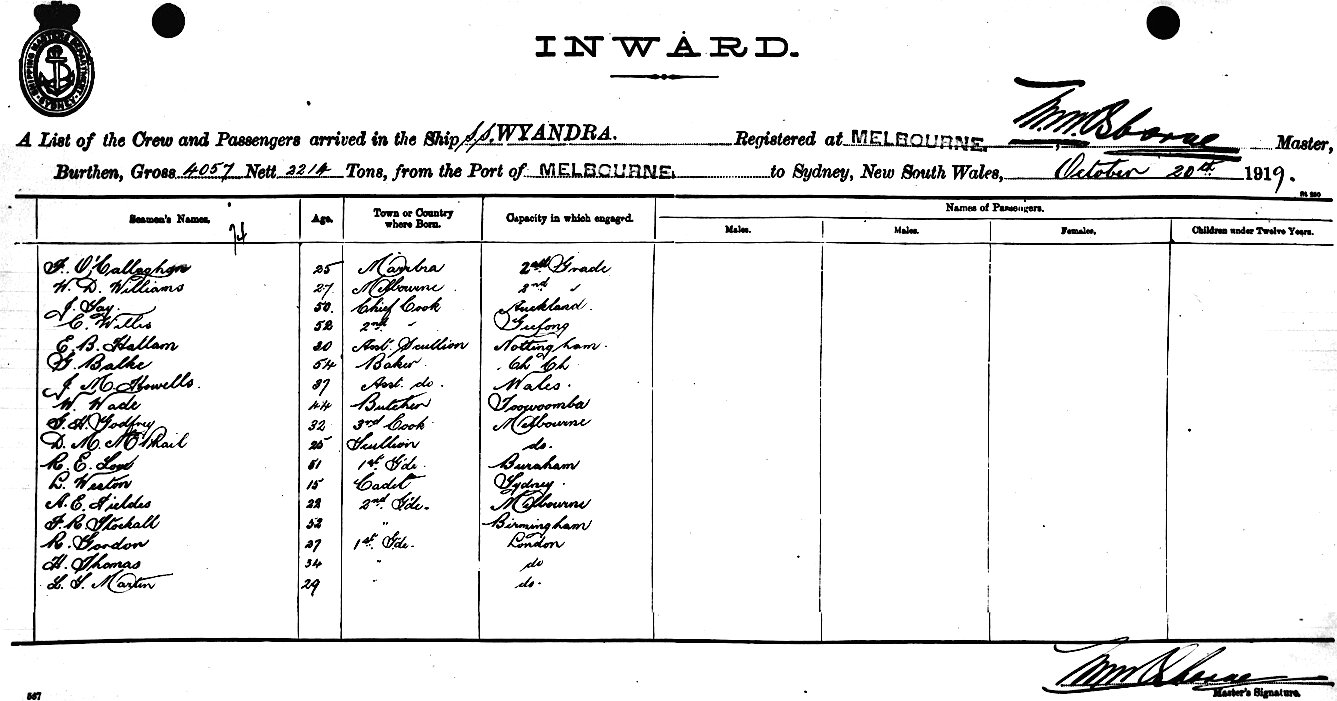 SHIPPING MASTERS DEPARTMENT SYDNEY
INWARD.
A List of the Crew and Passengers arrived in the Ship S.S. WYANDRA. Registered at MELBOURNE. Wm. Osborne Master,
Burthen, Gross 4057 Nett 2214 Tons, from the Port of MELBOURNE. to Sydney, New South Wales, October 20th 1919.
Seamen's Names. Age. Town or Country where Born. Capacity in which engaged. Names of Passengers.
Males. Males. Females. Children under Twelve Years.
F. O'Callaghan 25 2nd Grade
W. D. Williams 27 Melbourne 2nd "
J. Gay 50. Chief Cook Auckland.
C. Willis 52 2nd " Geelong
E. B. Hallam 20 Asst. Scullion Nottingham.
G. Balke 54 Baker Ch Ch
J. M. Howells. 37 Asst. do. Wales.
W. Wade 44 Butcher Toowoomba
G. H. Godfrey 32 3rd Cook Melbourne
D. M. McPhail 25 Scullion do.
R. E. Love 51 1st Gde.
L. Weston 15 Cadet Sydney.
A. E. Fieldes 22 2nd Gde. Melbourne
F. R. Stockall 52 " Birmingham
R. Gordon 27 1st Gde. London
H. Thomas 34 " do
L. S. Martin 29 " do.
Wm Osborne
Master's Signature.
567